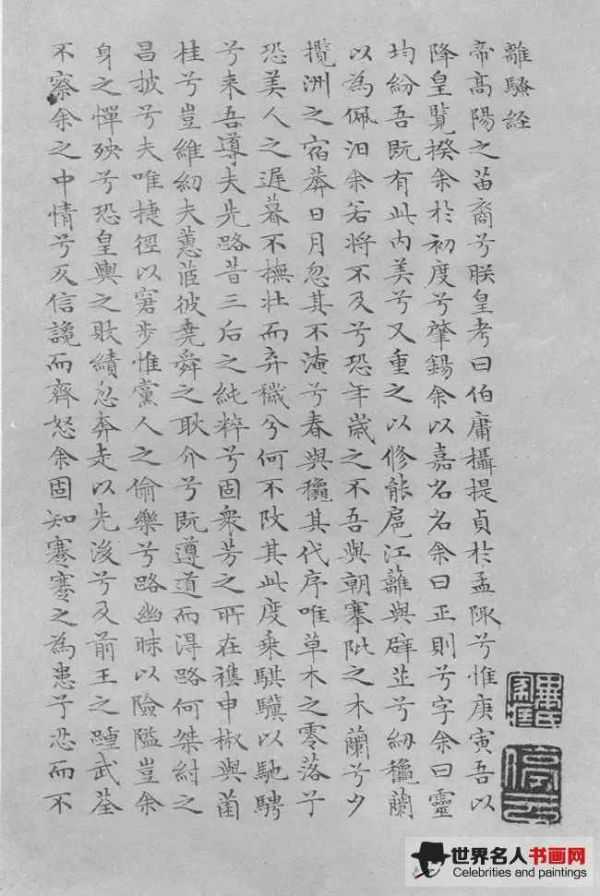 離騷經
帝高陽之苗裔兮朕皇考曰伯庸攝提貞於孟陬兮惟庚寅吾以
降皇覽揆余於初度兮肇錫余以嘉名名余曰正則兮字余曰靈
均紛吾既有此內美兮又重之以修能扈江蘺與辟芷兮紉龝蘭
以為佩汨余若將不及兮恐年歲之不吾與朝搴阰之木蘭兮夕
攬洲之宿莽日月忽其不淹兮春與龝其代序唯草木之零落兮
恐美人之遲暮不撫壯而弃穢兮何不改其此度乘騏驥以馳騁
兮来吾導夫先路昔三后之純粹兮固衆芳之所在襍申椒與菌
桂兮豈維紉夫蕙茝彼堯舜之耿介兮既遵道而得路何桀紂之
昌披兮夫唯捷徑以窘步惟黨人之偷樂兮路幽昧以險隘豈余
身之憚殃兮恐皇輿之敗績忽奔走以先後兮及前王之踵武荃
不察余之中情兮反信讒而齊怒余固知謇謇之為患兮恐而不
停雲
世界名人书画网
Celebrities and paintings